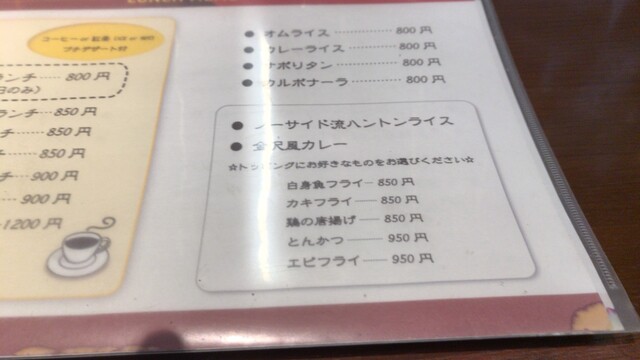 LUNCH
コーヒー or 紅茶
プチデザート付
ンチ…… 800 円
日のみ）
ランチ…850 円
チ…… 850 円
チ…… 850 円
チ…… 900 円
…… 900 円
1200 円
● オムライス ……………… 800 円
● カレーライス …………… 800 円
● ナポリタン ……………… 800 円
● カルボナーラ …………… 800 円
● ノーサイド流ハントンライス
● 金沢風カレー
☆トッピングにお好きなものをお選びください☆
白身魚フライ— 850 円
カキフライ — 850 円
鶏の唐揚げ — 850 円
とんかつ — 950 円
エビフライ — 950 円